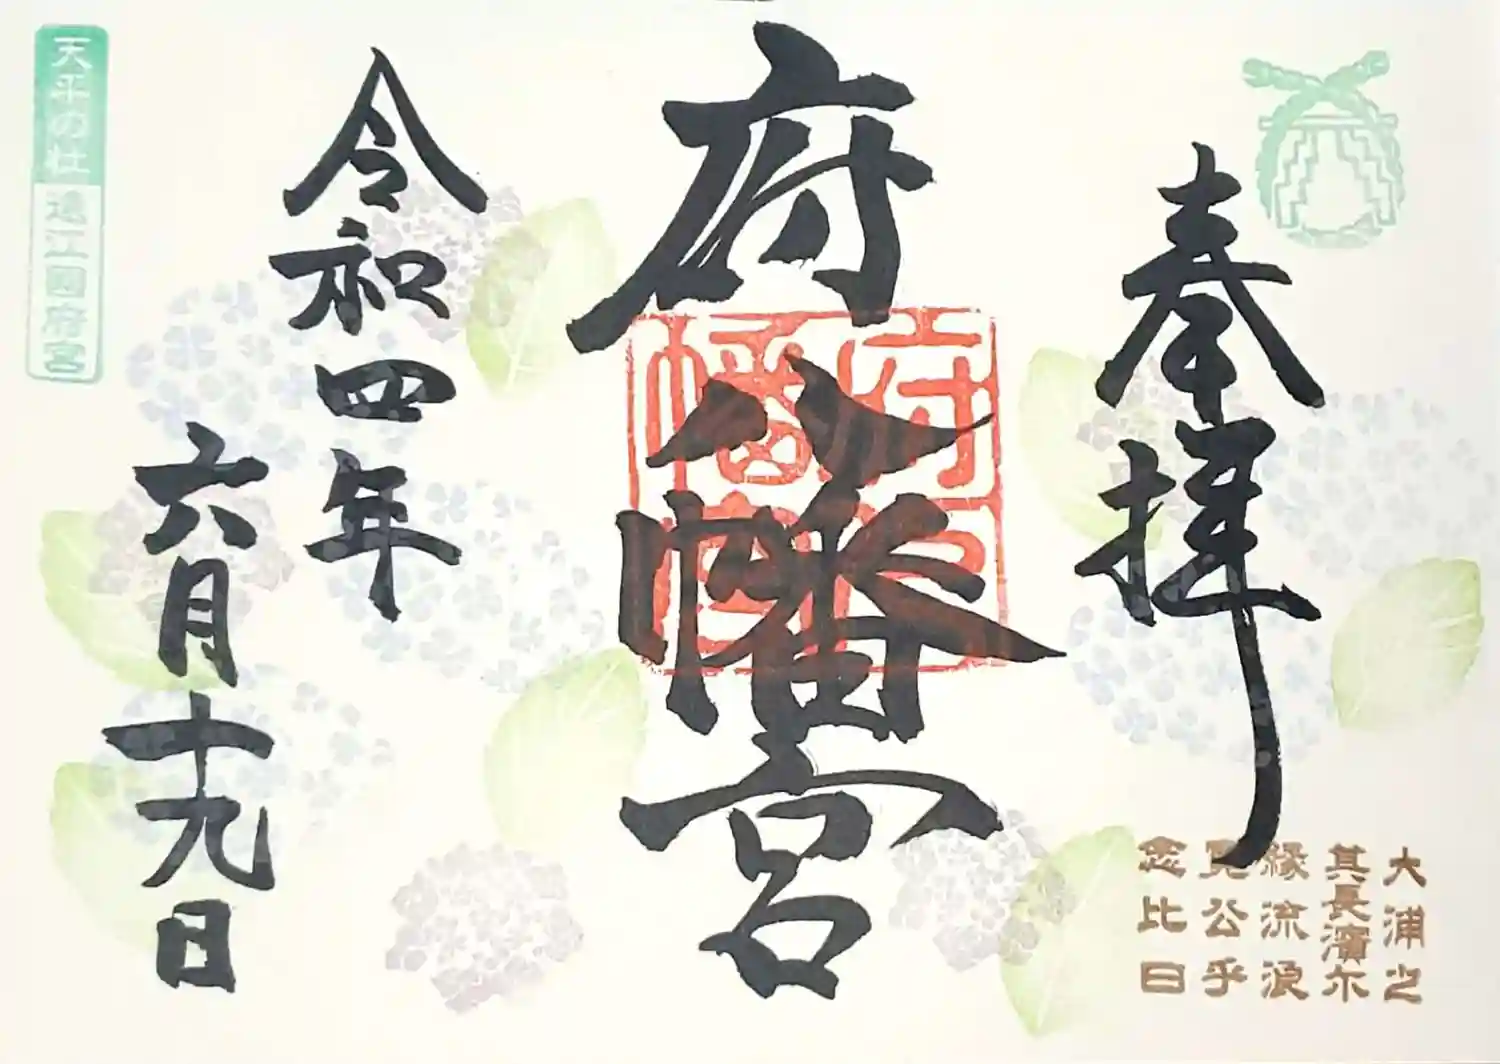 奉拝
大浦之
其長濱尓
縁流浪
寛公乎
念比日
府八幡宮
府八幡宮
令和四年
六月十九日
天平の杜
遠江國府宮